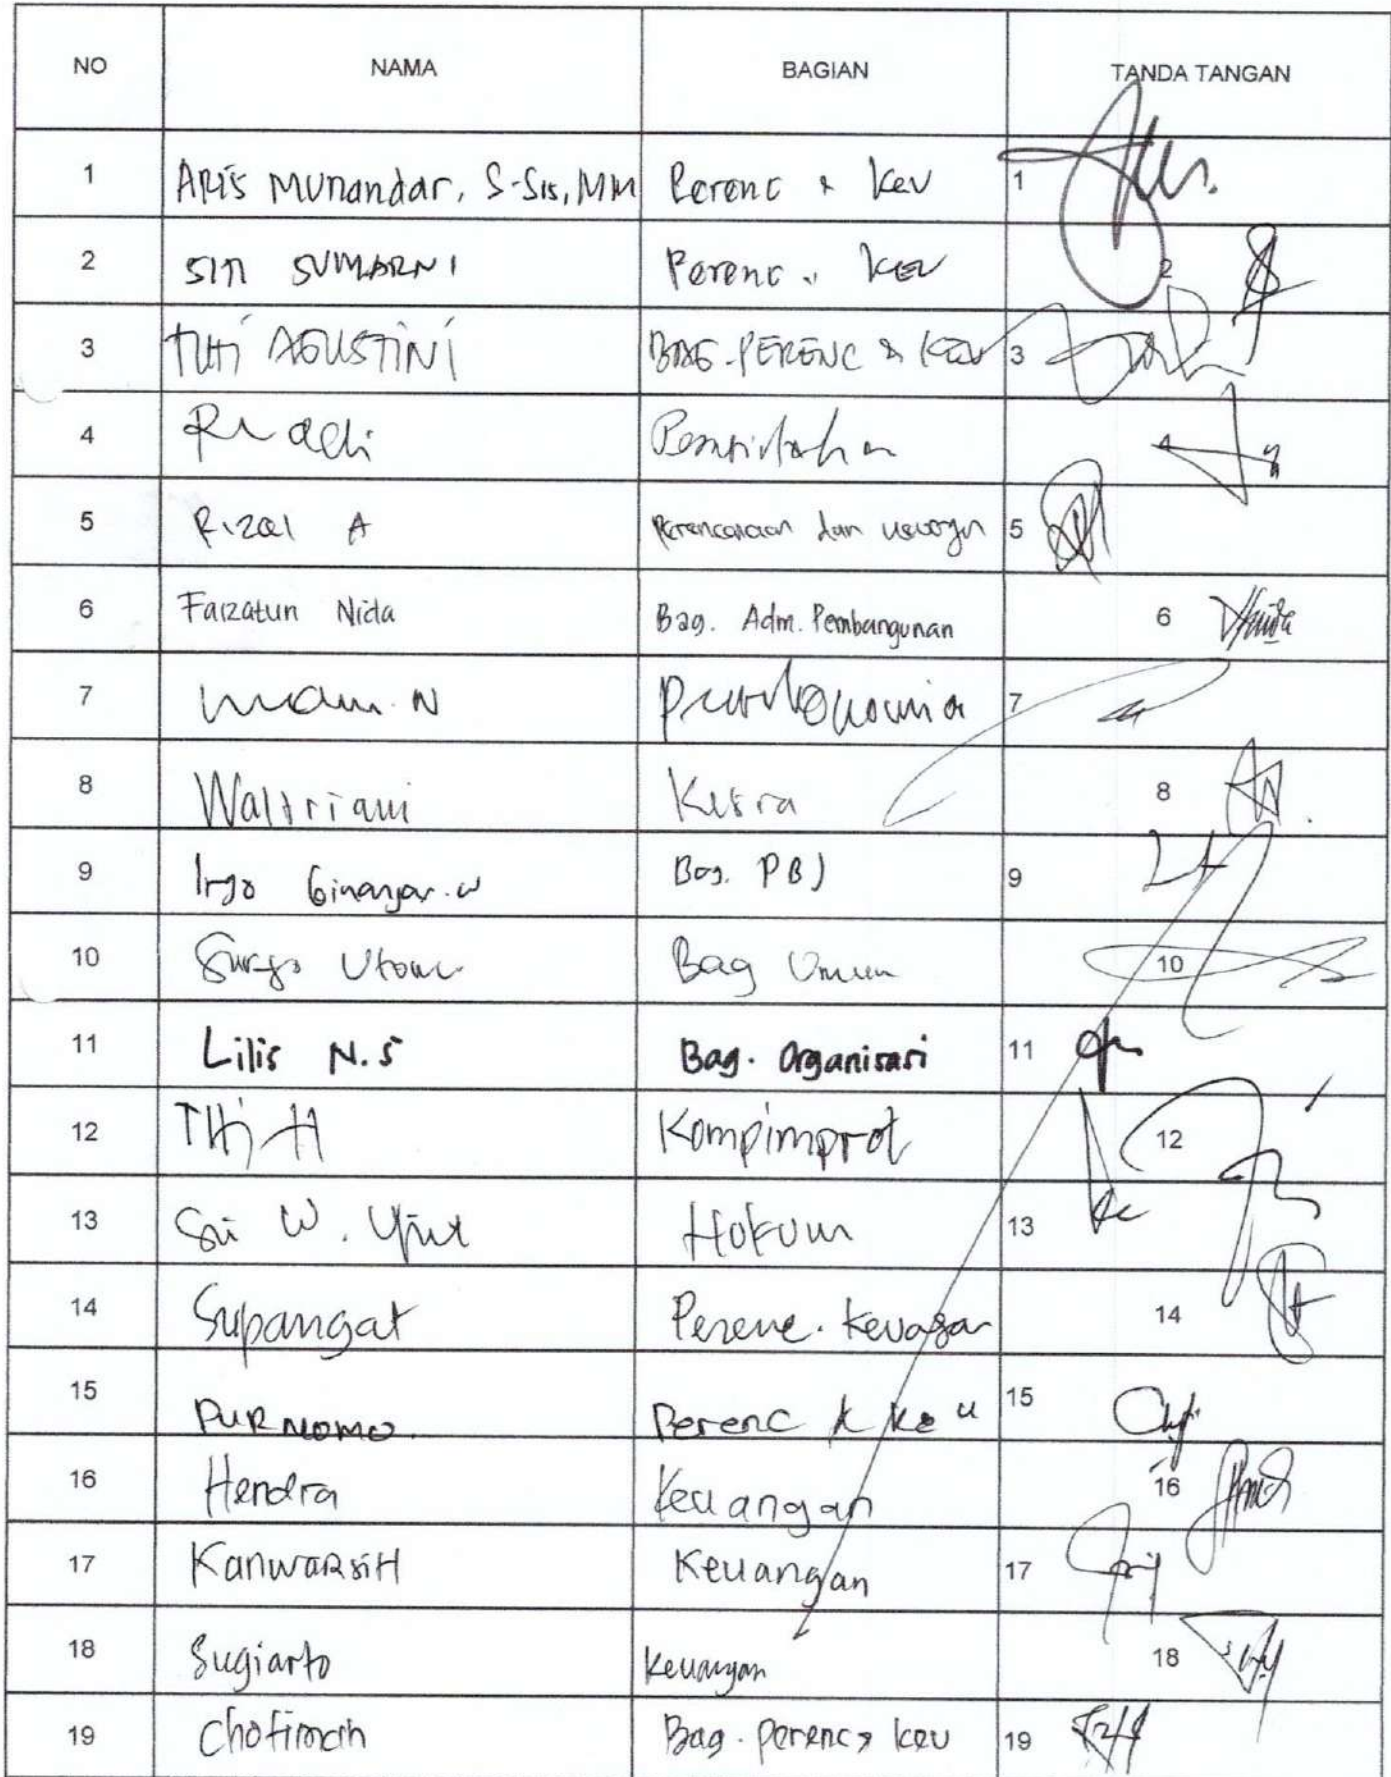 NO NAMA BAGIAN TANDA TANGAN
1 ARIS MUNANDAR, S-Sis, MM Perenc & Keu 1
2 SITI SUMARNI Perenc & KEU 2
3 TUTI AGUSTINI BAG-PERENC & KEU 3
4 Ruadi 4
5 Rizal A Perencanaan dan 5
6 Faizatun Nida Bag. Adm. Pembangunan 6
7 N 7
8 Waltriani Kesra 8
9 Ginanjar. w Bag. PBJ 9
10 Suryo Utomo Bag Umum 10
11 Lilis N.S Bag. Organisasi 11
12 Titi H Kompimprot 12
13 Sri W. Hukum 13
14 Supangat Perenc. Keuangan 14
15 PURNOMO. Perenc & Keu 15
16 Hendra Keuangan 16
17 KanwarsiH Keuangan 17
18 Sugiarto Keuangan 18
19 Chotimah Bag. Perenc & keu 19